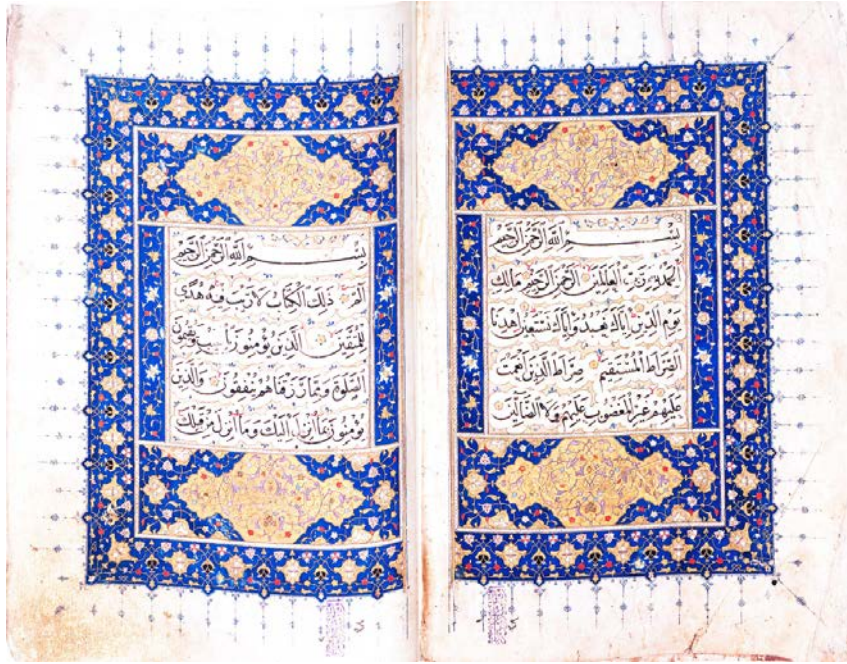 بِسْمِ اللَّهِ الرَّحْمَنِ الرَّحِيمِ
الحمد لله رب العالمين الرحمن الرحيم مالك
يوم الدين إياك نعبد وإياك نستعين اهدنا
الصراط المستقيم صراط الذين أنعمت
عليهم غير المغضوب عليهم ولا الضالين
بِسْمِ اللَّهِ الرَّحْمَنِ الرَّحِيمِ
الم ذلك الكتاب لا ريب فيه هدى
للمتقين الذين يؤمنون بالغيب ويقيمون
الصلوة ومما رزقناهم ينفقون والذين
يؤمنون بما أنزل إليك وما أنزل من قبلك